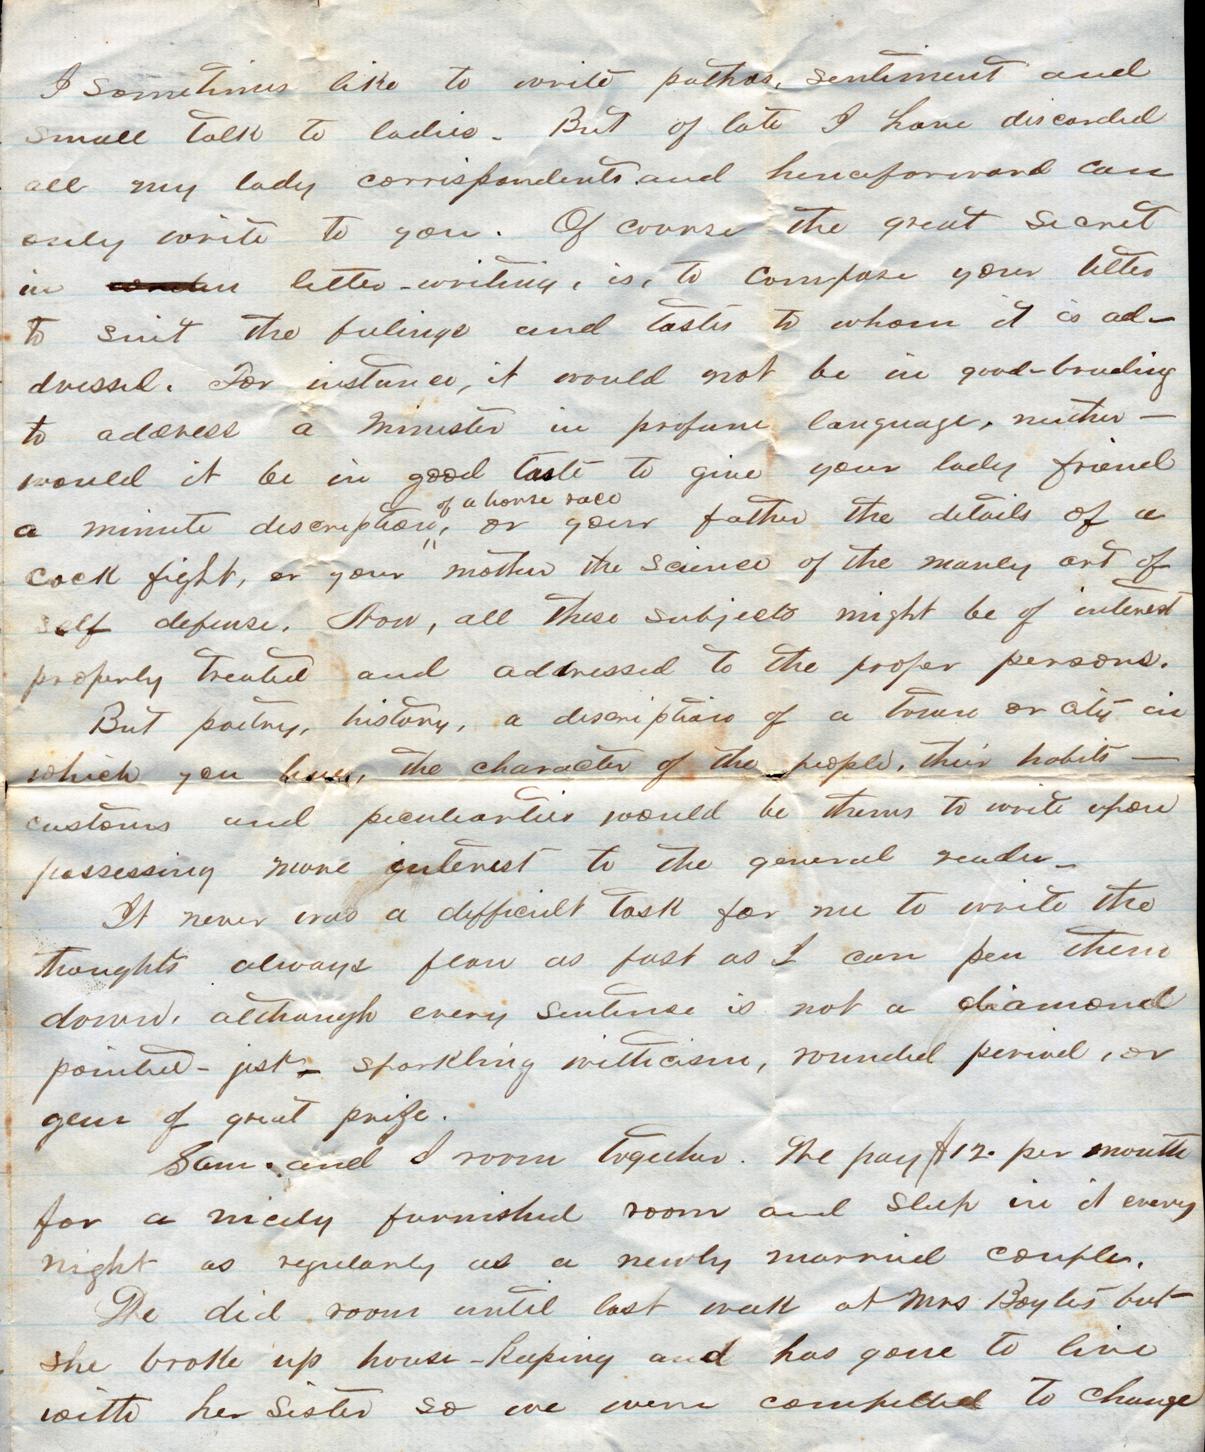 I sometimes like to write pathos, sentiment and
small talk to ladies. But of late I have discarded
all my lady corrispondents and henceforward can
only write to you. Of course the great secret
in letter-writing, is, to compose your letter
to suit the feelings and tastes to whom it is ad-
dressed. For instance, it would not be in good-breeding
to address a Minister in profane language, neither —
would it be in good taste to give your lady friend
of a horse race
a minute discription, or your father the details of a
cock fight, or your mother the science of the manly art of
self defense. Now, all these subjects might be of interest
properly treated and addressed to the proper persons.
But poetry, history, a discription of a town or city in
which you live, the character of the people, their habits —
customs and peculiarties would be thems to write upon
possessing more interest to the general reader_
It never was a difficult task for me to write the
thoughts always flow as fast as I can pen them
down, although every sentense is not a diamond
pointed - jest - sparkling witticism, rounded period, or
gem of great prize.
Sam. and I room together. We pay $12. per month
for a nicely furnished room and sleep in it every
night as regularly as a newly married couple.
We did room until last week at Mrs Boyles but
she broke up house-keeping and has gone to live
with her sister so we were compelled to change